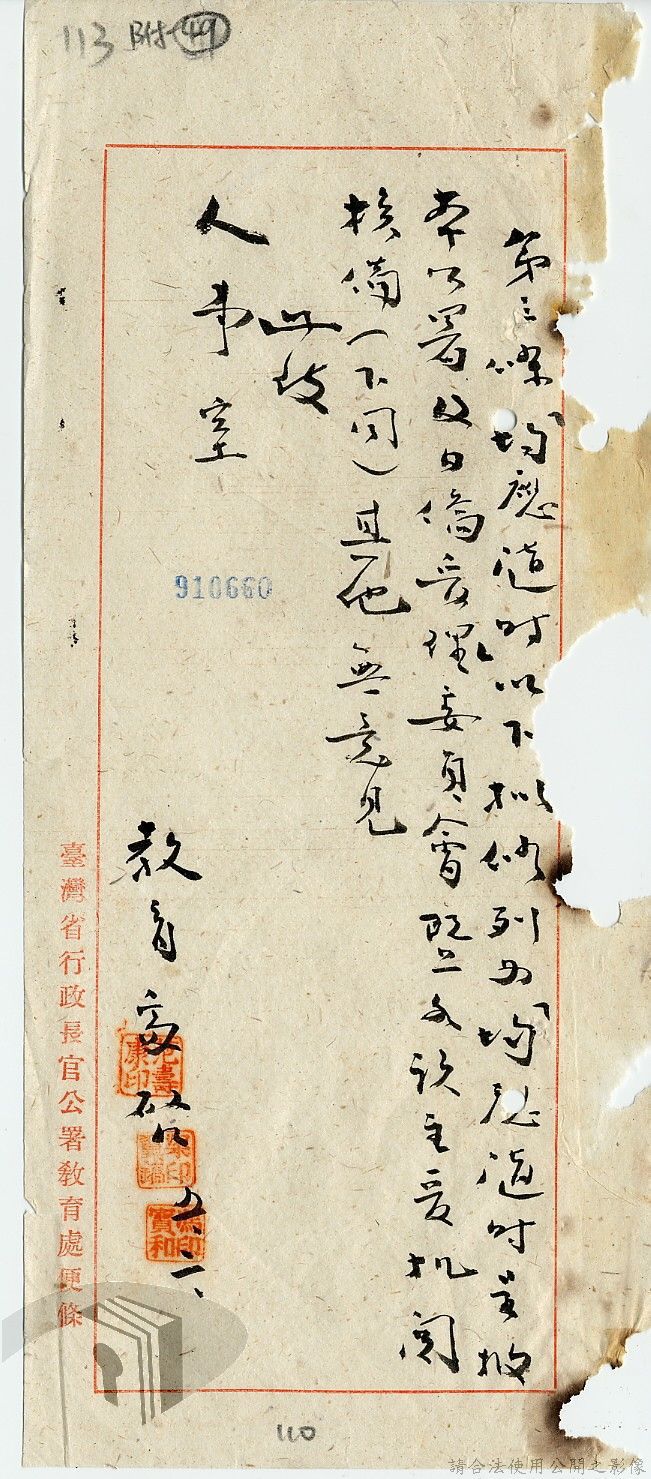 113附49
第三條「均應隨時以下擬修列為「均應隨時呈報
本公署及日僑管理委員會暨各該主管机関
核備（下同）其他無意見
此致
人事室
910660
教育處啟 五、二一、
范壽康印
印
印
臺灣省行政長官公署教育處便條
110
請合法使用公開之影像